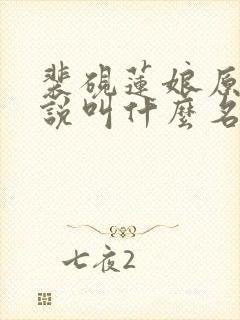 裴硯蓮娘原
說叫什麼名
七夜2